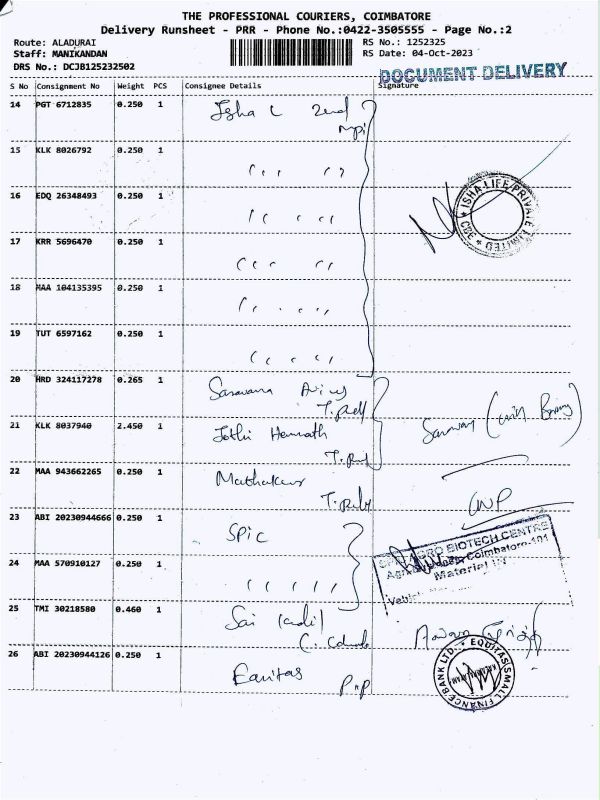 THE PROFESSIONAL COURIERS, COIMBATORE
Delivery Runsheet - PRR - Phone No.:0422-3505555 - Page No.:2
Route: ALADURAI RS No.: 1252325
Staff: MANIKANDAN RS Date: 04-Oct-2023
DRS No.: DCJB125232502
DOCUMENT DELIVERY
S No Consignment No Weight PCS Consignee Details Signature
14 PGT 6712835 0.250 1 Isha L 2end
15 KLK 8026792 0.250 1 " "
16 EDQ 26348493 0.250 1 " "
ISHA LIFE PRIVATE LIMITED * CBE *
17 KRR 5696470 0.250 1 " "
18 MAA 104135395 0.250 1 " "
19 TUT 6597162 0.250 1 " "
20 HRD 324117278 0.265 1 Saravana
21 KLK 8037940 2.450 1 Jothi Hemnath
22 MAA 943662265 0.250 1
23 ABI 20230944666 0.250 1 SPIC
AGRO BIOTECH CENTRE
Coimbatore-101
Material IN
24 MAA 570910127 0.250 1 " "
25 TMI 30218580 0.460 1 Sai
26 ABI 20230944126 0.250 1 Equitas PNP
EQUITAS SMALL FINANCE BANK LTD.